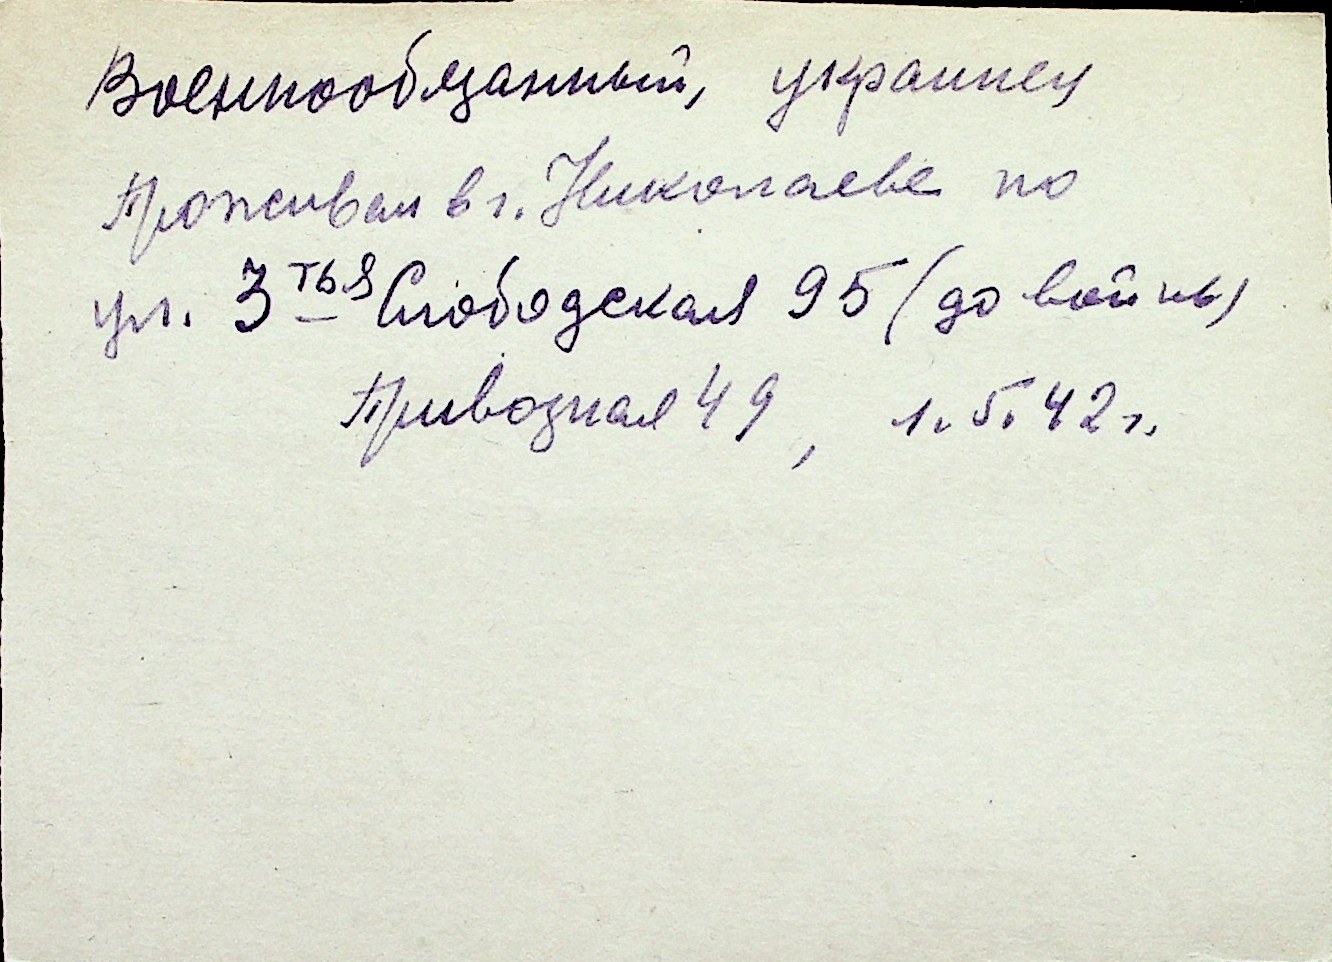 Военнообязанный, украинец
Проживал в г. Николаеве по
ул. 3тья Слободская 95 (до войны)
Привозная 49, 1.5.42г.